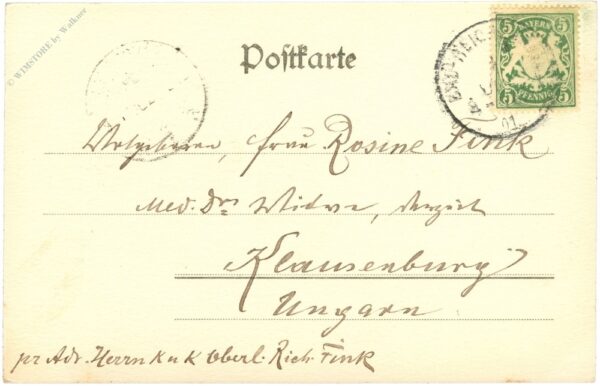 © WIMSTORE by Walkner
Postkarte
BAYERN
5 5
5 PFENNIG 5
BAD REICH
01
frau Rosine Fink
Med. Drs Witwe,
Klausenburg
Ungarn
pr Adr. Herrn K u K Oberl. Rich. Fink